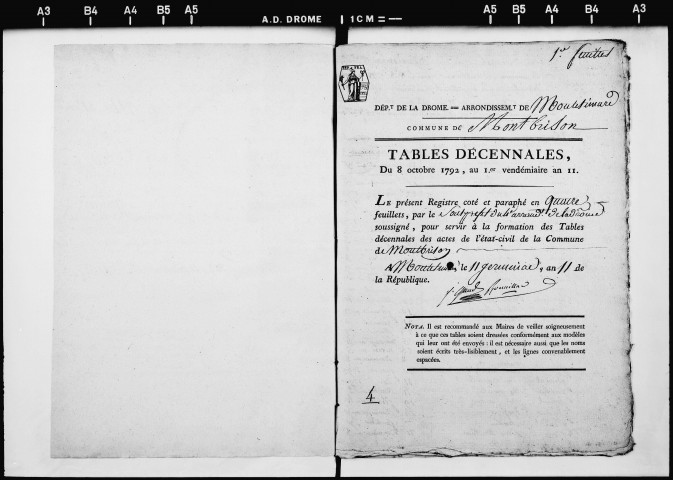 A3 B4 A4 B5 A5 A.D. DROME 1 CM = A5 B5 A4 B4 A3
1er feuillet
DÉP.T DE LA DROME. == ARRONDISSEM.T DE Montelimard
COMMUNE DE Montbrison
TABLES DÉCENNALES,
Du 8 octobre 1792, au 1.er vendémiaire an 11.
LE présent Registre coté et paraphé en quatre
feuillets, par le Souspréfet du 4e arrond.t de la Drome
soussigné, pour servir à la formation des Tables
décennales des actes de l'état-civil de la Commune
de Montbrison
A Montelimar le 11 germinal, an 11 de
la République.
NOTA. Il est recommandé aux Maires de veiller soigneusement
à ce que ces tables soient dressées conformément aux modèles
qui leur ont été envoyés : il est nécessaire aussi que les noms
soient écrits très-lisiblement, et les lignes convenablement
espacées.
4